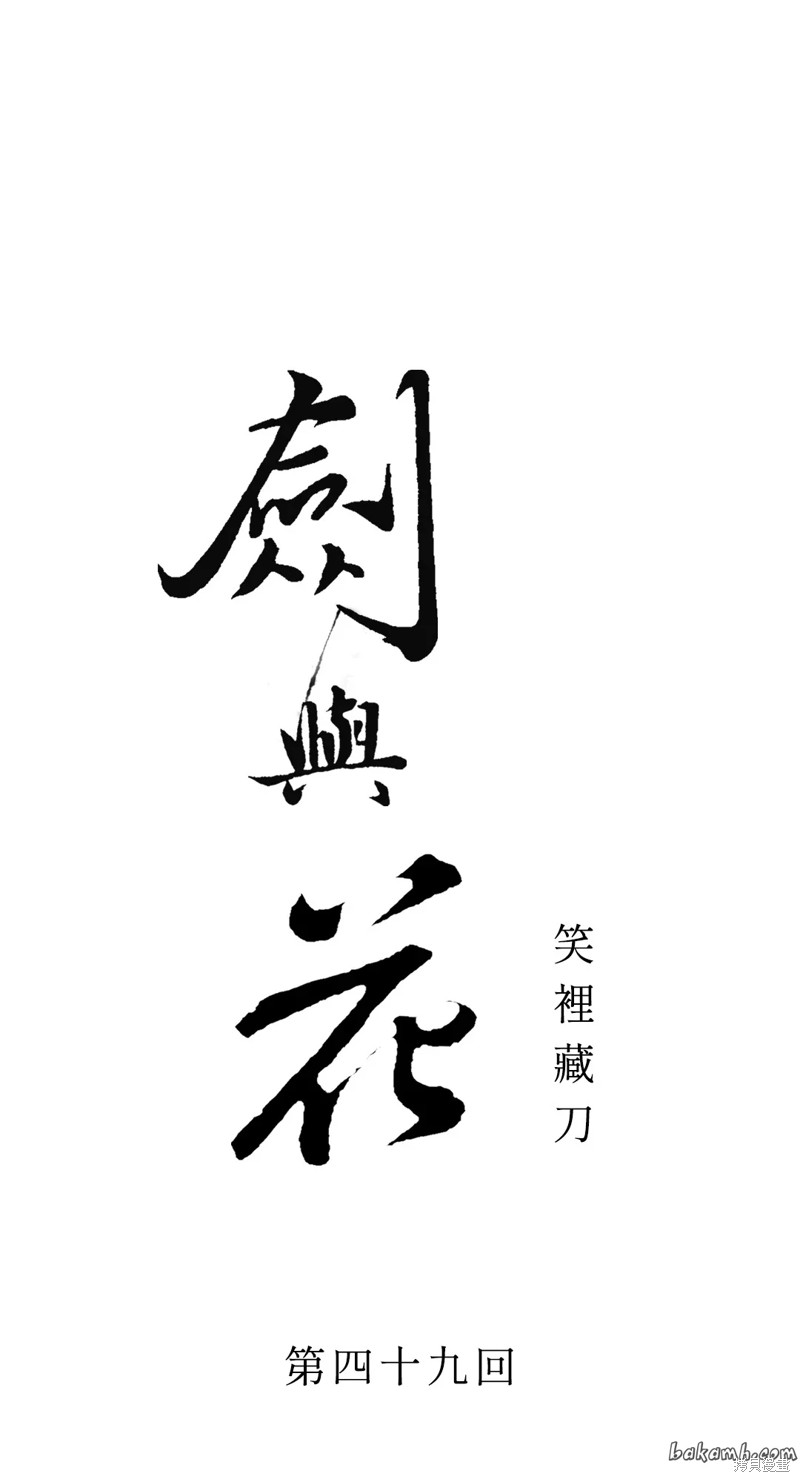 劍與花
笑裡藏刀
第四十九回
bakamh.com
拷貝漫畫